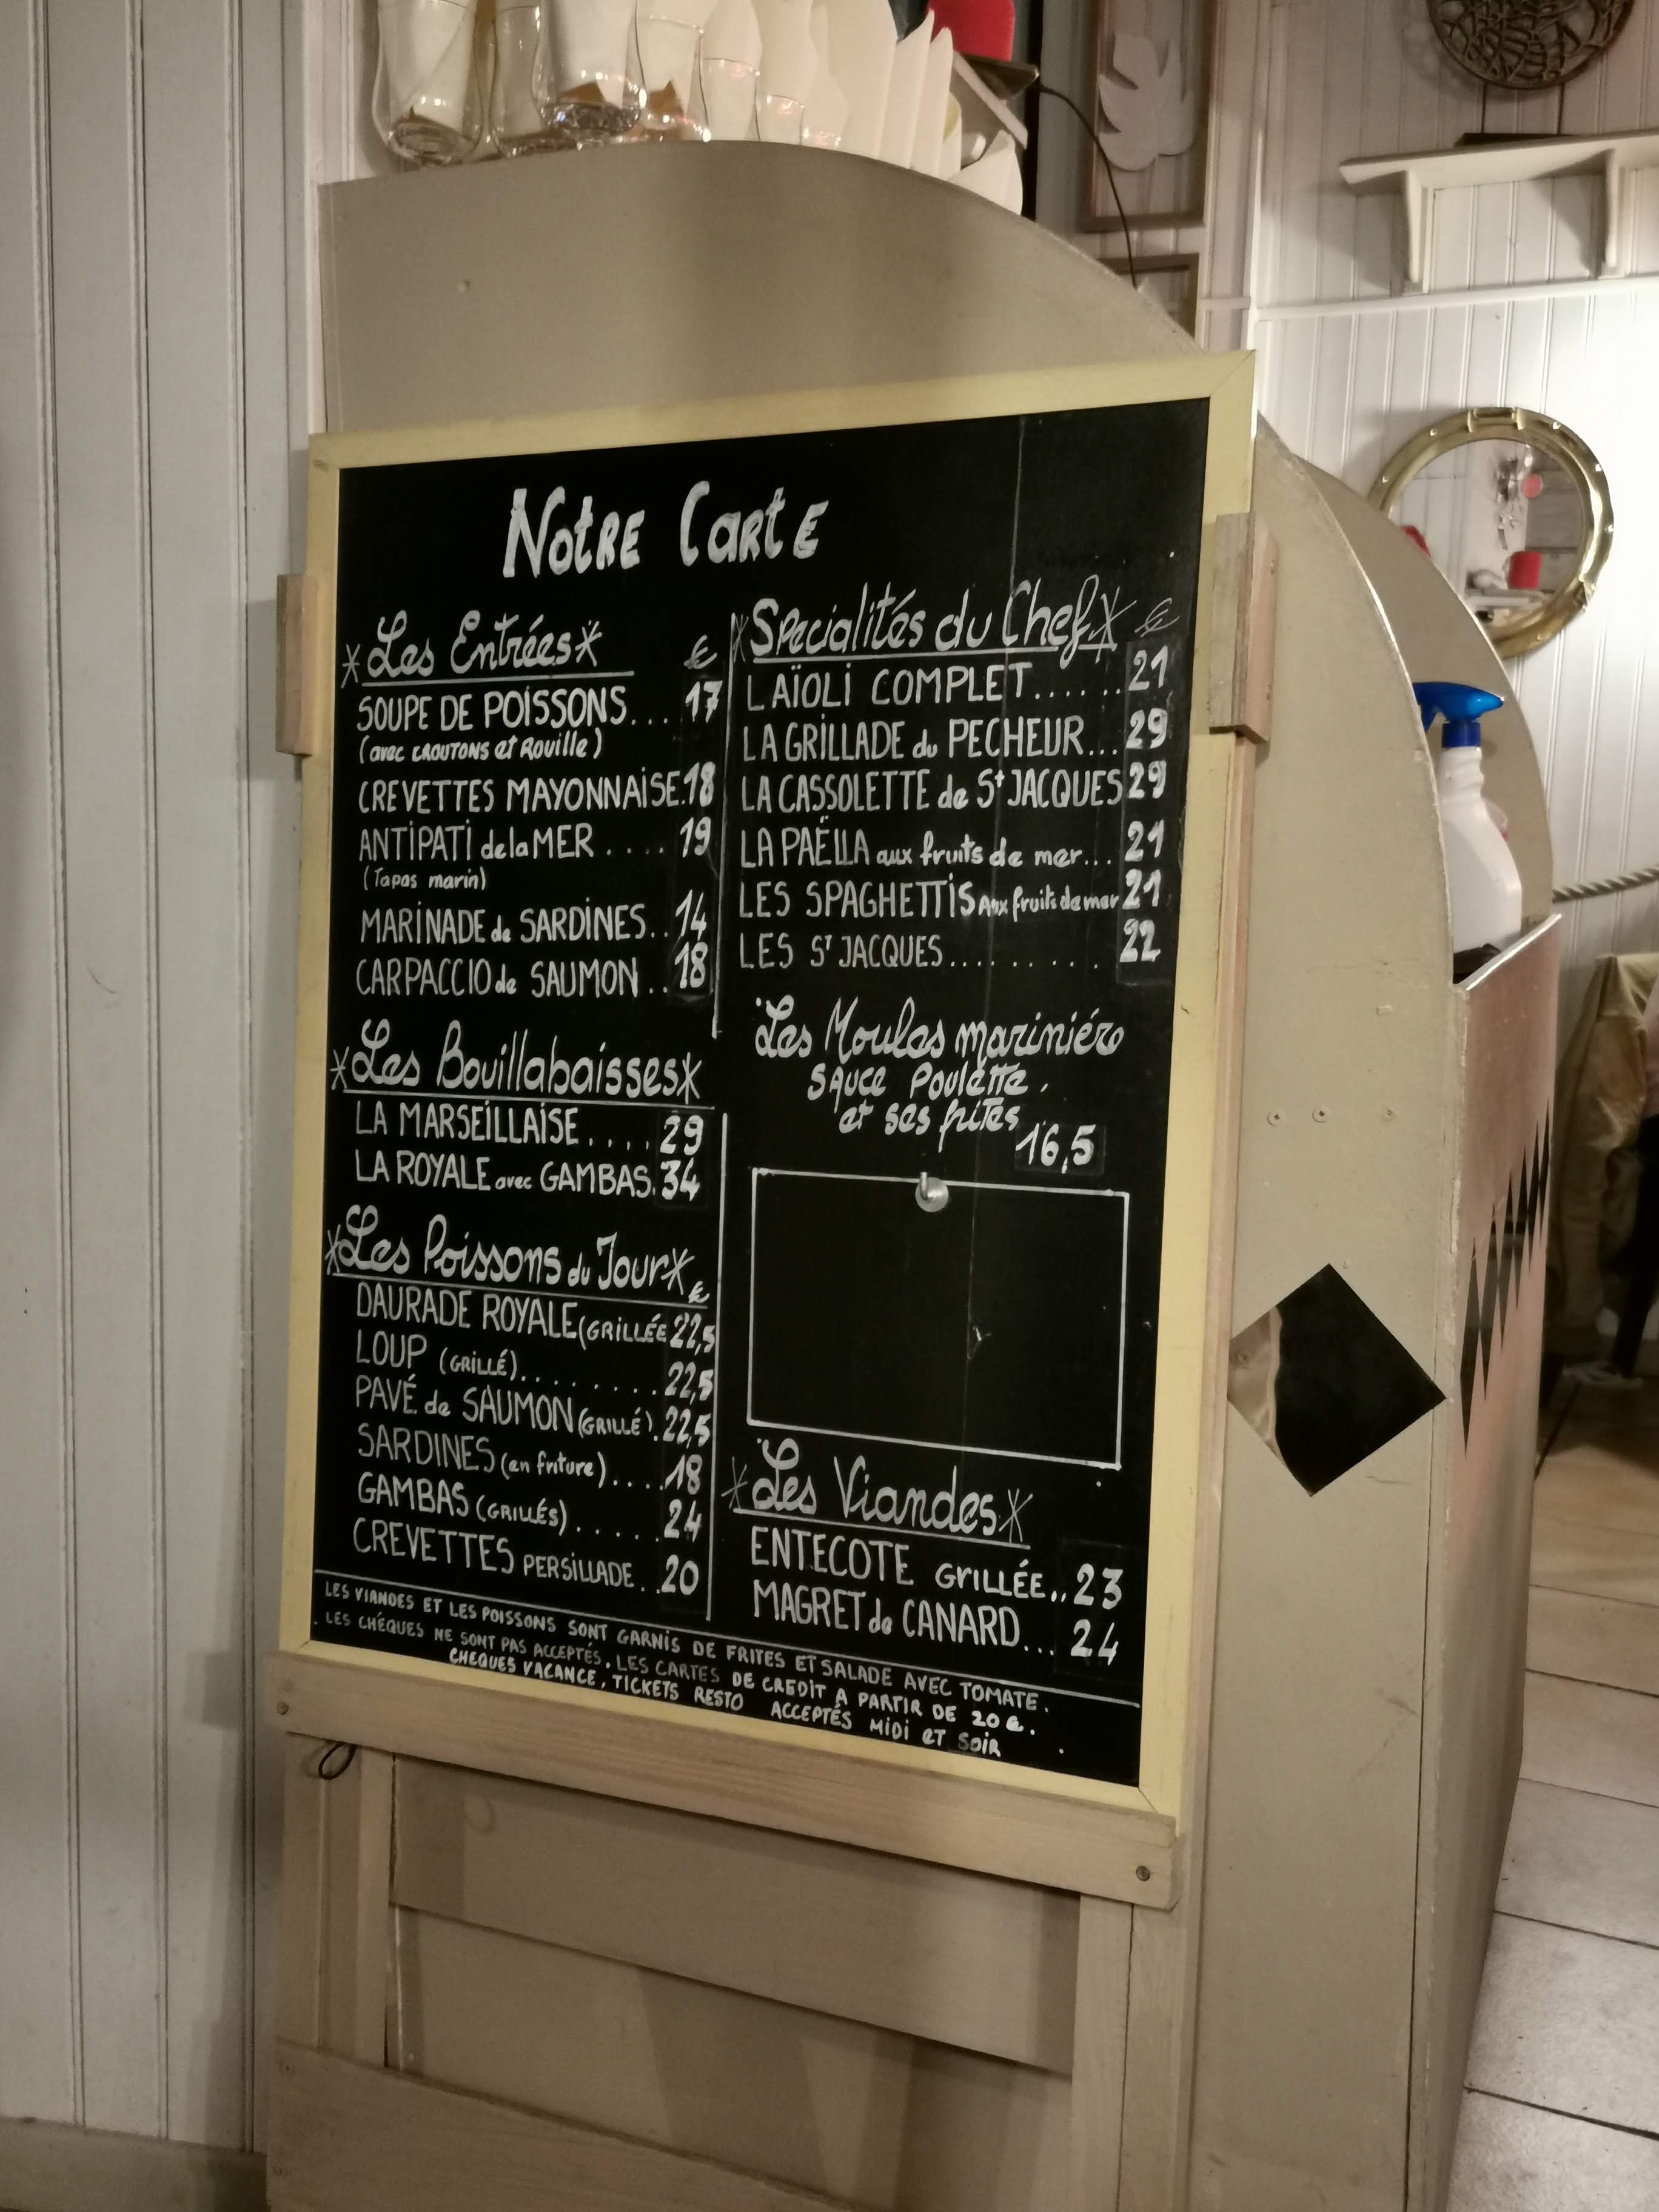 Notre Carte
*Les Entrées*
€
SOUPE DE POISSONS... 17
(avec CROUTONS et Rouille)
CREVETTES MAYONNAISE.18
ANTIPATI de la MER .... 19
(Tapas marin)
MARINADE de SARDINES.. 14
CARPACCIO de SAUMON .. 18
*Les Bouillabaisses*
LA MARSEILLAISE.... 29
LA ROYALE avec GAMBAS. 34
*Les Poissons du Jour*
€
DAURADE ROYALE (GRILLÉE 22,5
LOUP (GRILLÉ)........ 22,5
PAVÉ de SAUMON (GRILLÉ). 22,5
SARDINES (en friture).... 18
GAMBAS (GRILLÉS)..... 24
CREVETTES PERSILLADE.. 20
*Specialités du Chef*
€
L AÏOLI COMPLET...... 21
LA GRILLADE du PECHEUR... 29
LA CASSOLETTE de St JACQUES 29
LA PAËLLA aux fruits de mer... 21
LES SPAGHETTIS Aux fruits de mer 21
LES ST JACQUES......... 22
Les Moules mariniére
Sauce Poulette,
et ses frites
16,5
*Les Viandes*
ENTECOTE GRILLÉE.. 23
MAGRET de CANARD... 24
LES VIANDES ET LES POISSONS SONT GARNIS DE FRITES ET SALADE AVEC TOMATE.
. LES CHÉQUES NE SONT PAS ACCEPTÉS. LES CARTES DE CREDIT A PARTIR DE 20 €.
CHEQUES VACANCE, TICKETS RESTO ACCEPTÉS MIDI ET SOIR .